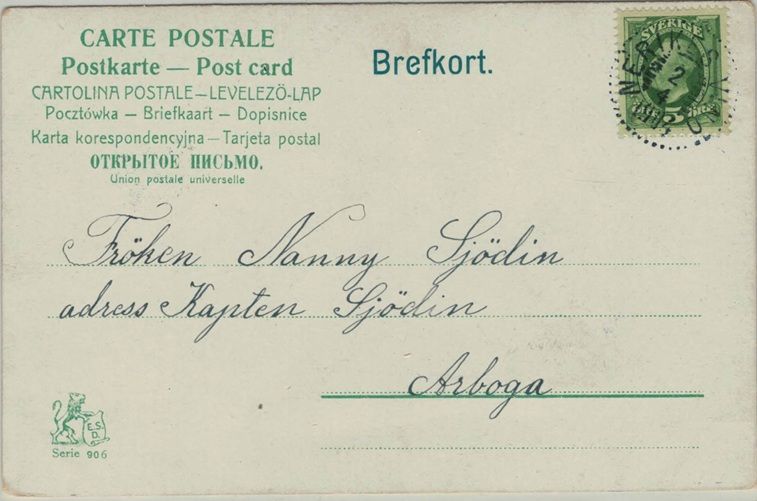 CARTE POSTALE
Postkarte — Post card
CARTOLINA POSTALE – LEVELEZÖ-LAP
Pocztówka – Briefkaart – Dopisnice
Karta korespondencyjna – Tarjeta postal
ОТКРЫТОЕ ПИСЬМО.
Union postale universelle
Brefkort.
SVERIGE
2
4
5 ÖRE
Fröken Nanny Sjödin
adress Kapten Sjödin
Arboga
E.S.
D.
Serie 906